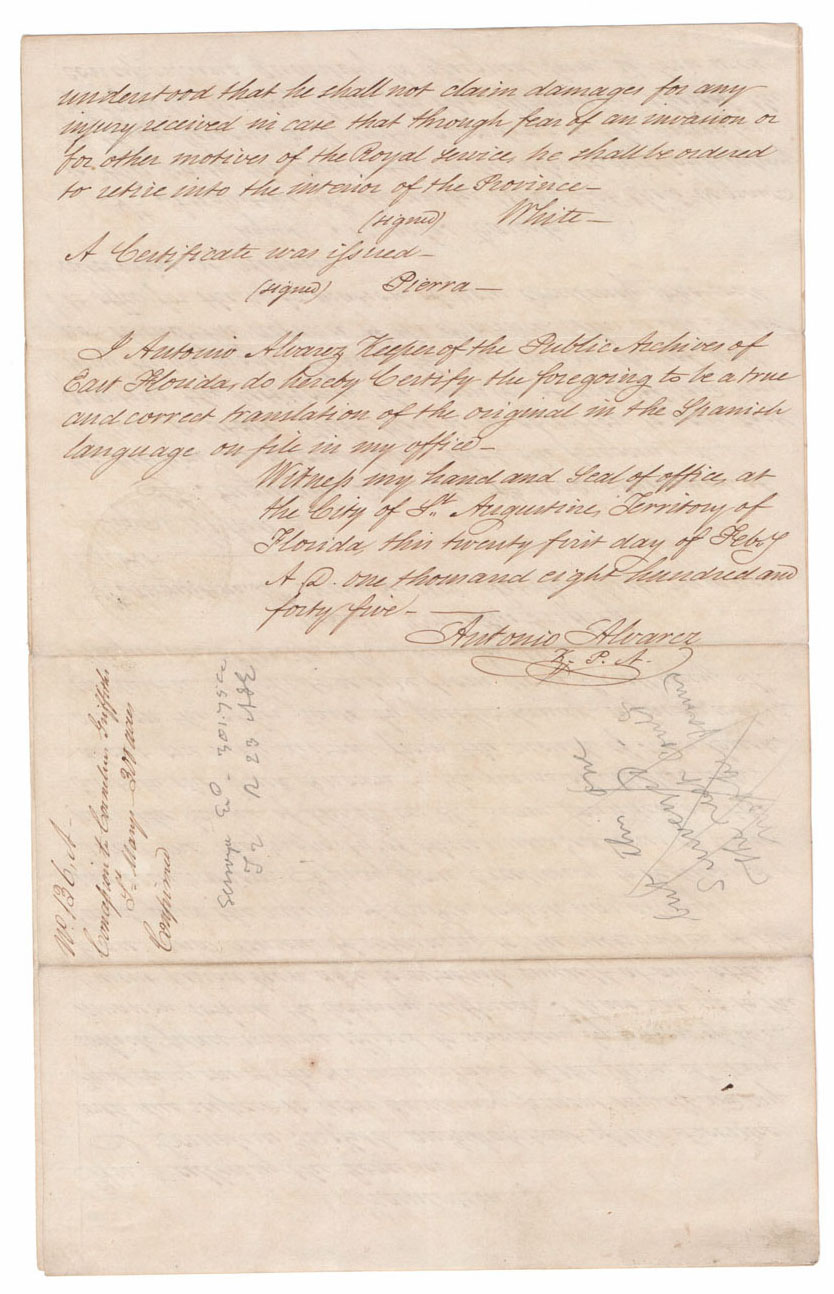 understood that he shall not claim damages for any
injury received in case that through fear of an invasion or
for other motives of the Royal service, he shall be ordered
to retire into the interior of the Province—
(signed) White—
A Certificate was issued—
(signed) Pierra—
I Antonio Alvarez Keeper of the Public Archives of
East Florida, do hereby Certify the foregoing to be a true
and correct translation of the original in the Spanish
language on file in my office—
Witness my hand and Seal of office, at
the City of St. Augustine, Territory of
Florida, this twenty first day of Feby
A.D. one thousand eight hundred and
forty five—
Antonio Alvarez
K. P. A.
No. 136. A—
Concession to Cornelius Griffith
St. Marys 300 acres
Confirmed
T 2 R 23